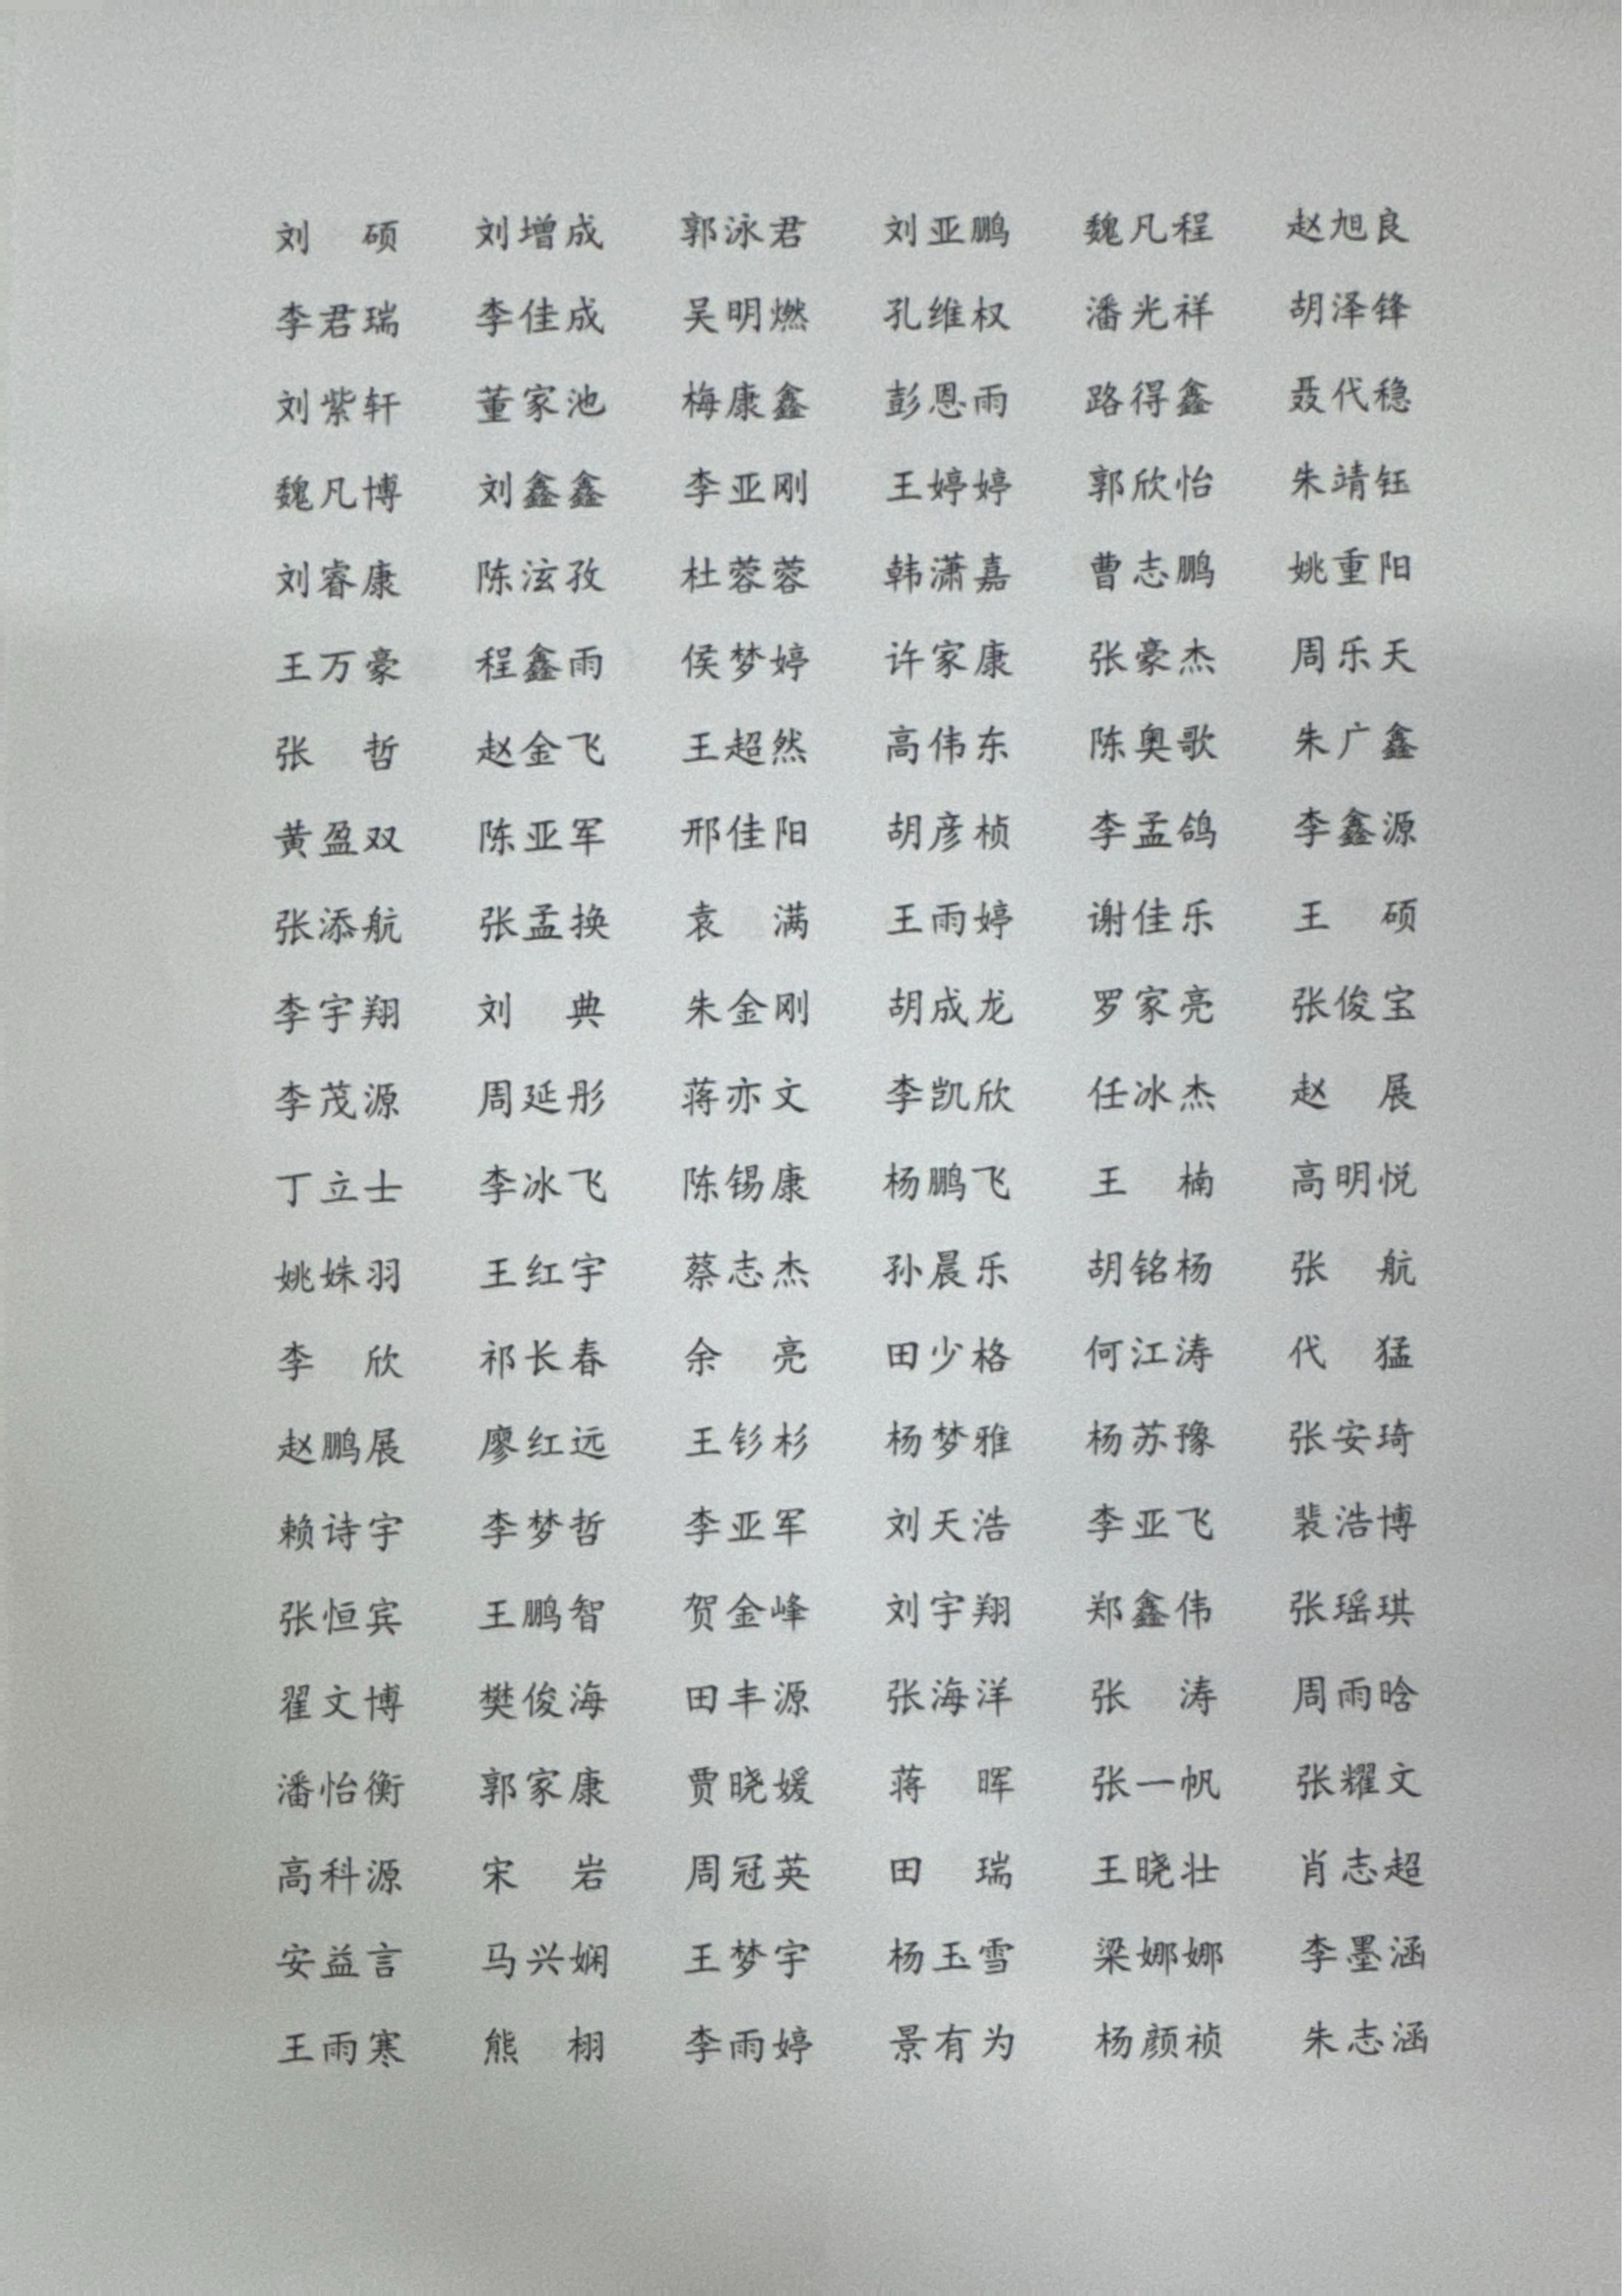 刘　硕　刘增成　郭泳君　刘亚鹏　魏凡程　赵旭良
李君瑞　李佳成　吴明燃　孔维权　潘光祥　胡泽锋
刘紫轩　董家池　梅康鑫　彭恩雨　路得鑫　聂代稳
魏凡博　刘鑫鑫　李亚刚　王婷婷　郭欣怡　朱靖钰
刘睿康　陈泫孜　杜蓉蓉　韩潇嘉　曹志鹏　姚重阳
王万豪　程鑫雨　侯梦婷　许家康　张豪杰　周乐天
张　哲　赵金飞　王超然　高伟东　陈奥歌　朱广鑫
黄盈双　陈亚军　邢佳阳　胡彦桢　李孟鸽　李鑫源
张添航　张孟换　袁　满　王雨婷　谢佳乐　王　硕
李宇翔　刘　典　朱金刚　胡成龙　罗家亮　张俊宝
李茂源　周延彤　蒋亦文　李凯欣　任冰杰　赵　展
丁立士　李冰飞　陈锡康　杨鹏飞　王　楠　高明悦
姚姝羽　王红宇　蔡志杰　孙晨乐　胡铭杨　张　航
李　欣　祁长春　余　亮　田少格　何江涛　代　猛
赵鹏展　廖红远　王钐杉　杨梦雅　杨苏豫　张安琦
赖诗宇　李梦哲　李亚军　刘天浩　李亚飞　裴浩博
张恒宾　王鹏智　贺金峰　刘宇翔　郑鑫伟　张瑶琪
翟文博　樊俊海　田丰源　张海洋　张　涛　周雨晗
潘怡衡　郭家康　贾晓媛　蒋　晖　张一帆　张耀文
高科源　宋　岩　周冠英　田　瑞　王晓壮　肖志超
安益言　马兴娴　王梦宇　杨玉雪　梁娜娜　李墨涵
王雨寒　熊　栩　李雨婷　景有为　杨颜祯　朱志涵